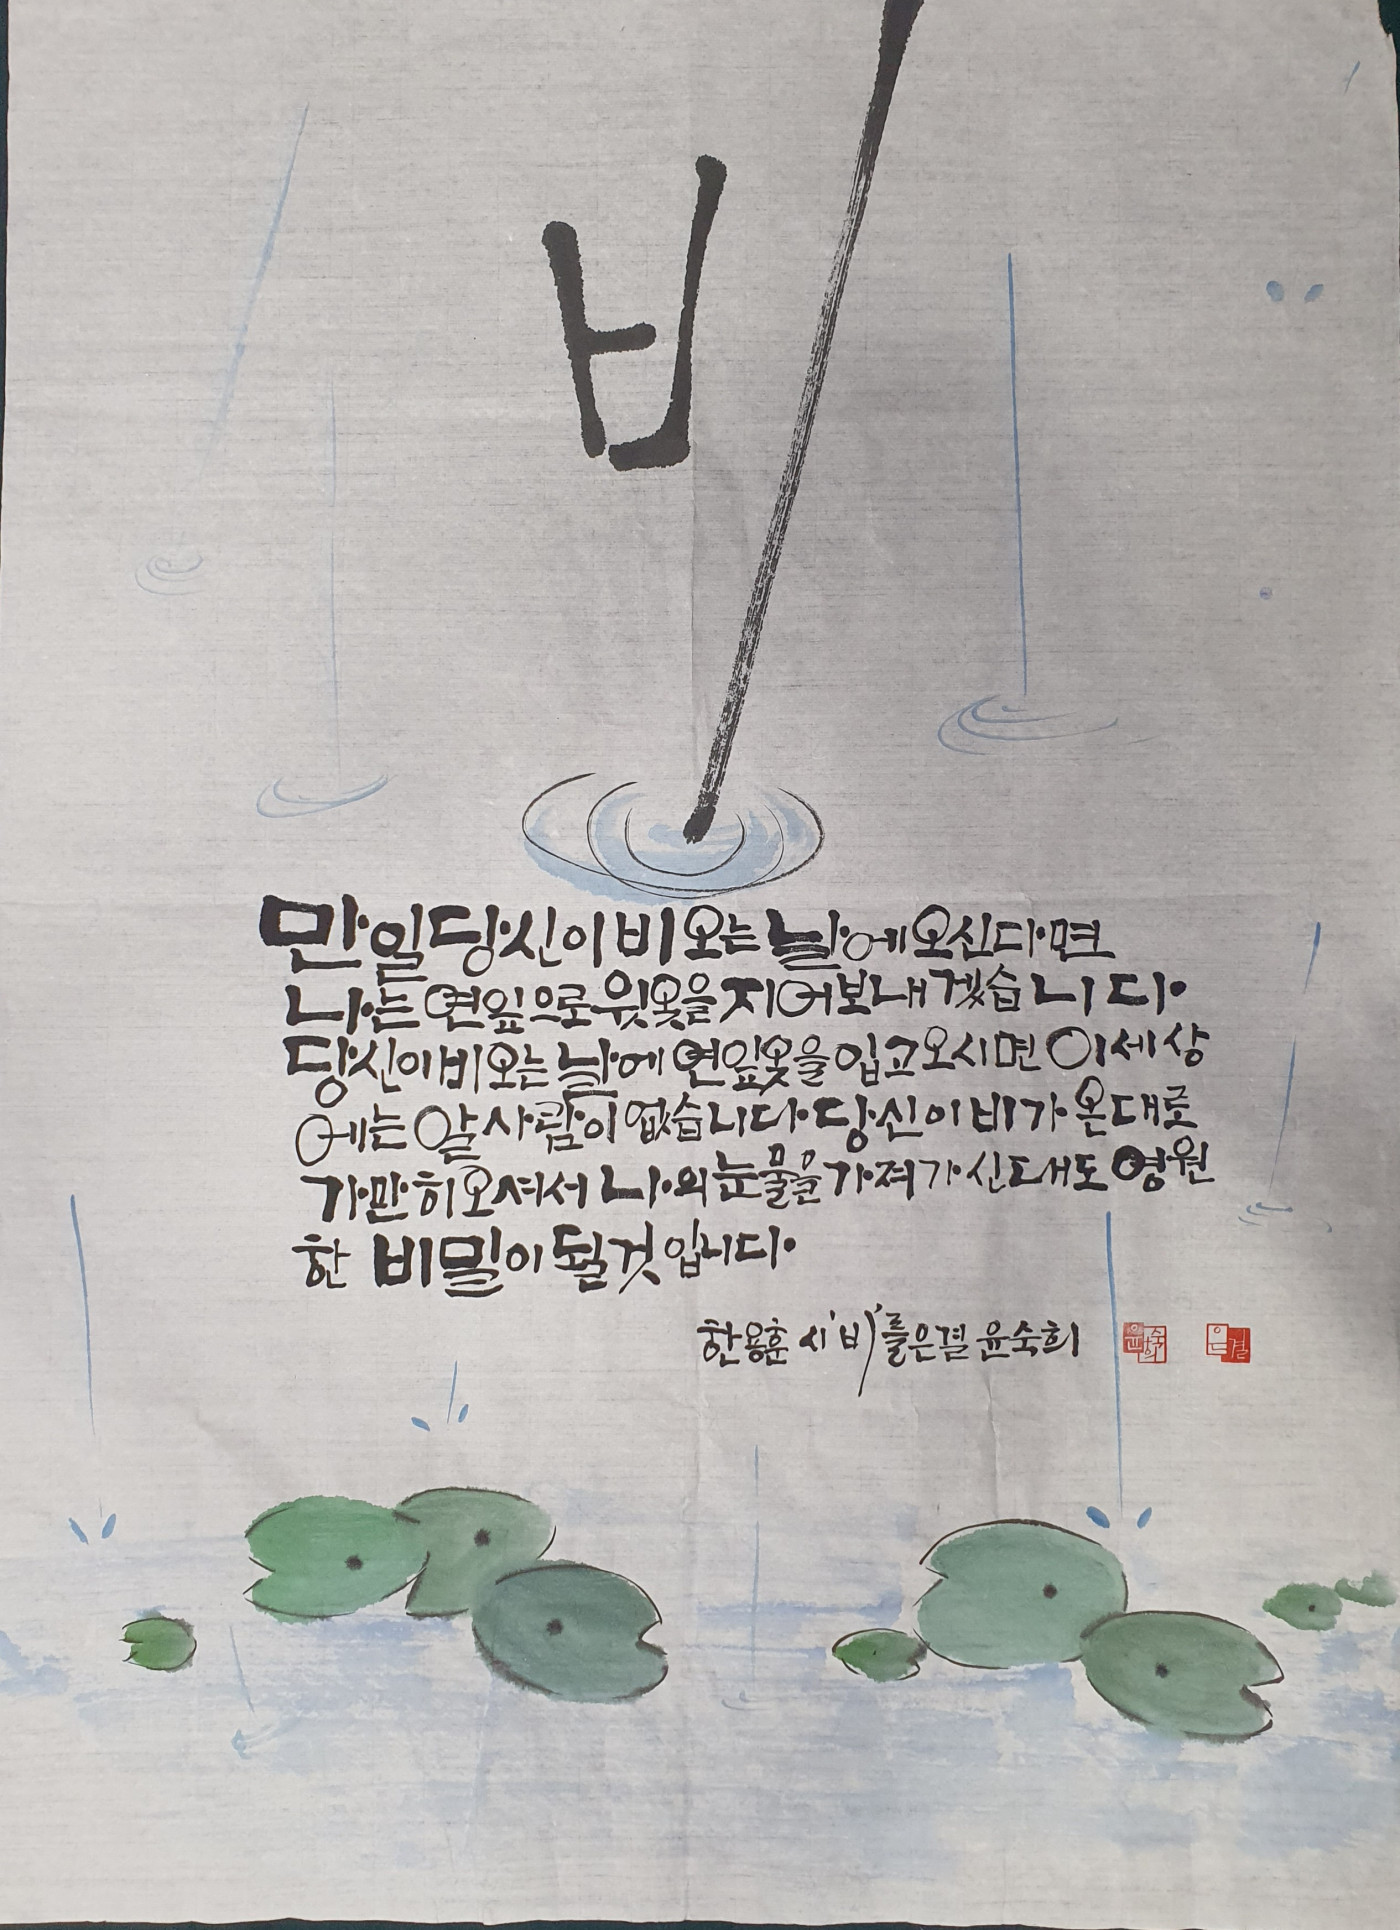 비
만일 당신이 비오는 날에 오신다면
나는 연잎으로 윗옷을 지어 보내겠습니다.
당신이 비오는 날에 연잎옷을 입고 오시면 이 세상
에는 알 사람이 없습니다. 당신이 비가 온대로
가만히 오셔서 나의 눈물을 가져가신대도 영원
한 비밀이 될 것입니다.
한용운 시 '비'를 은결 윤숙희
윤숙희 은결